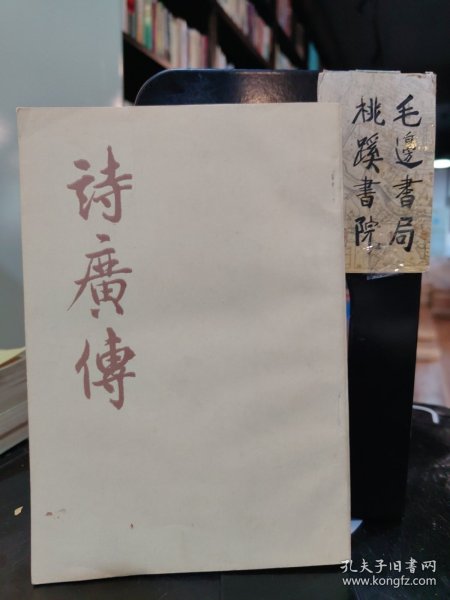 詩廣傳
毛邊書局
桃蹊書院
孔夫子旧书网
www.kongfz.com